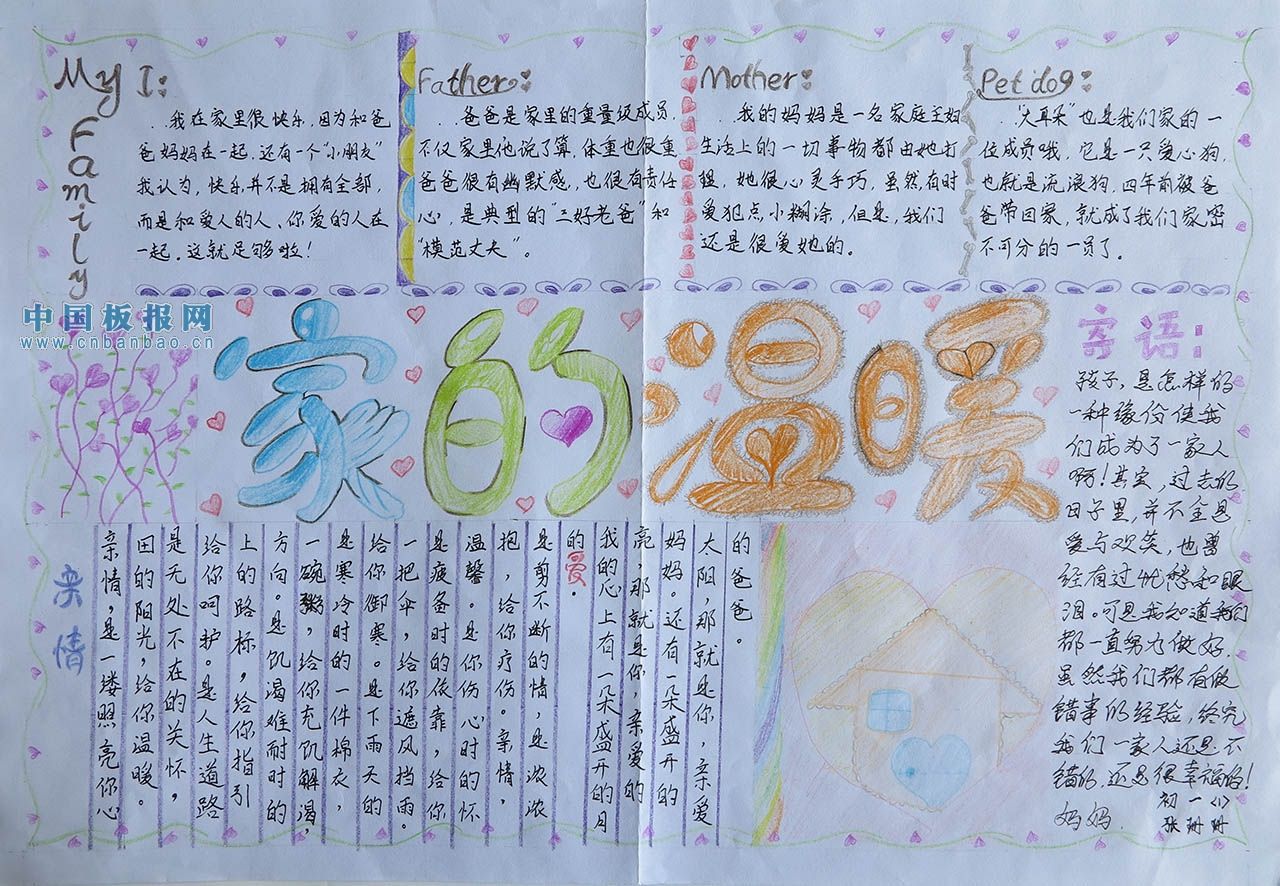 My Family
I:
我在家里很快乐，因为和爸
爸妈妈在一起，还有一个“小朋友”
我认为，快乐并不是拥有全部，
而是和爱人的人、你爱的人在
一起。这就足够啦！
Father:
爸爸是家里的重量级成员，
不仅家里他说了算，体重也很重
爸爸很有幽默感，也很有责任
心，是典型的“三好老爸”和
“模范丈夫”。
Mother:
我的妈妈是一名家庭主妇
生活上的一切事物都由她打
理，她很心灵手巧，虽然有时
爱犯点小糊涂，但是，我们
还是很爱她的。
Pet dog:
“大耳朵”也是我们家的一
位成员哦，它是一只爱心狗，
也就是流浪狗，四年前被爸
爸带回家，就成了我们家密
不可分的一员了。
中国板报网
www.cnbanbao.cn
家的温暖
寄语：
孩子，是怎样的
一种缘份使我
们成为了一家人
啊！其实，过去的
日子里，并不全是
爱与欢笑，也曾
经有过忧愁和眼
泪。可是我知道我们
都一直努力做好。
虽然我们都有做
错事的经验，终究
我们一家人还是不
错的，还是很幸福的！
妈妈
初一〈1〉
张珊珊
亲情
亲情，是一缕照亮你心
田的阳光，给你温暖。
是无处不在的关怀，
给你呵护。是人生道路
上的路标，给你指引
方向。是饥渴难耐时的
一碗粥，给你充饥解渴，
是寒冷时的一件棉衣，
给你御寒。是下雨天的
一把伞，给你遮风挡雨。
是疲备时的依靠，给你
温馨。是你伤心时的怀
抱，给你疗伤。亲情，
是剪不断的情，是浓浓
的爱。
我的心上有一朵盛开的月
亮，那就是你，亲爱的
妈妈。还有一朵盛开的
太阳，那就是你，亲爱
的爸爸。